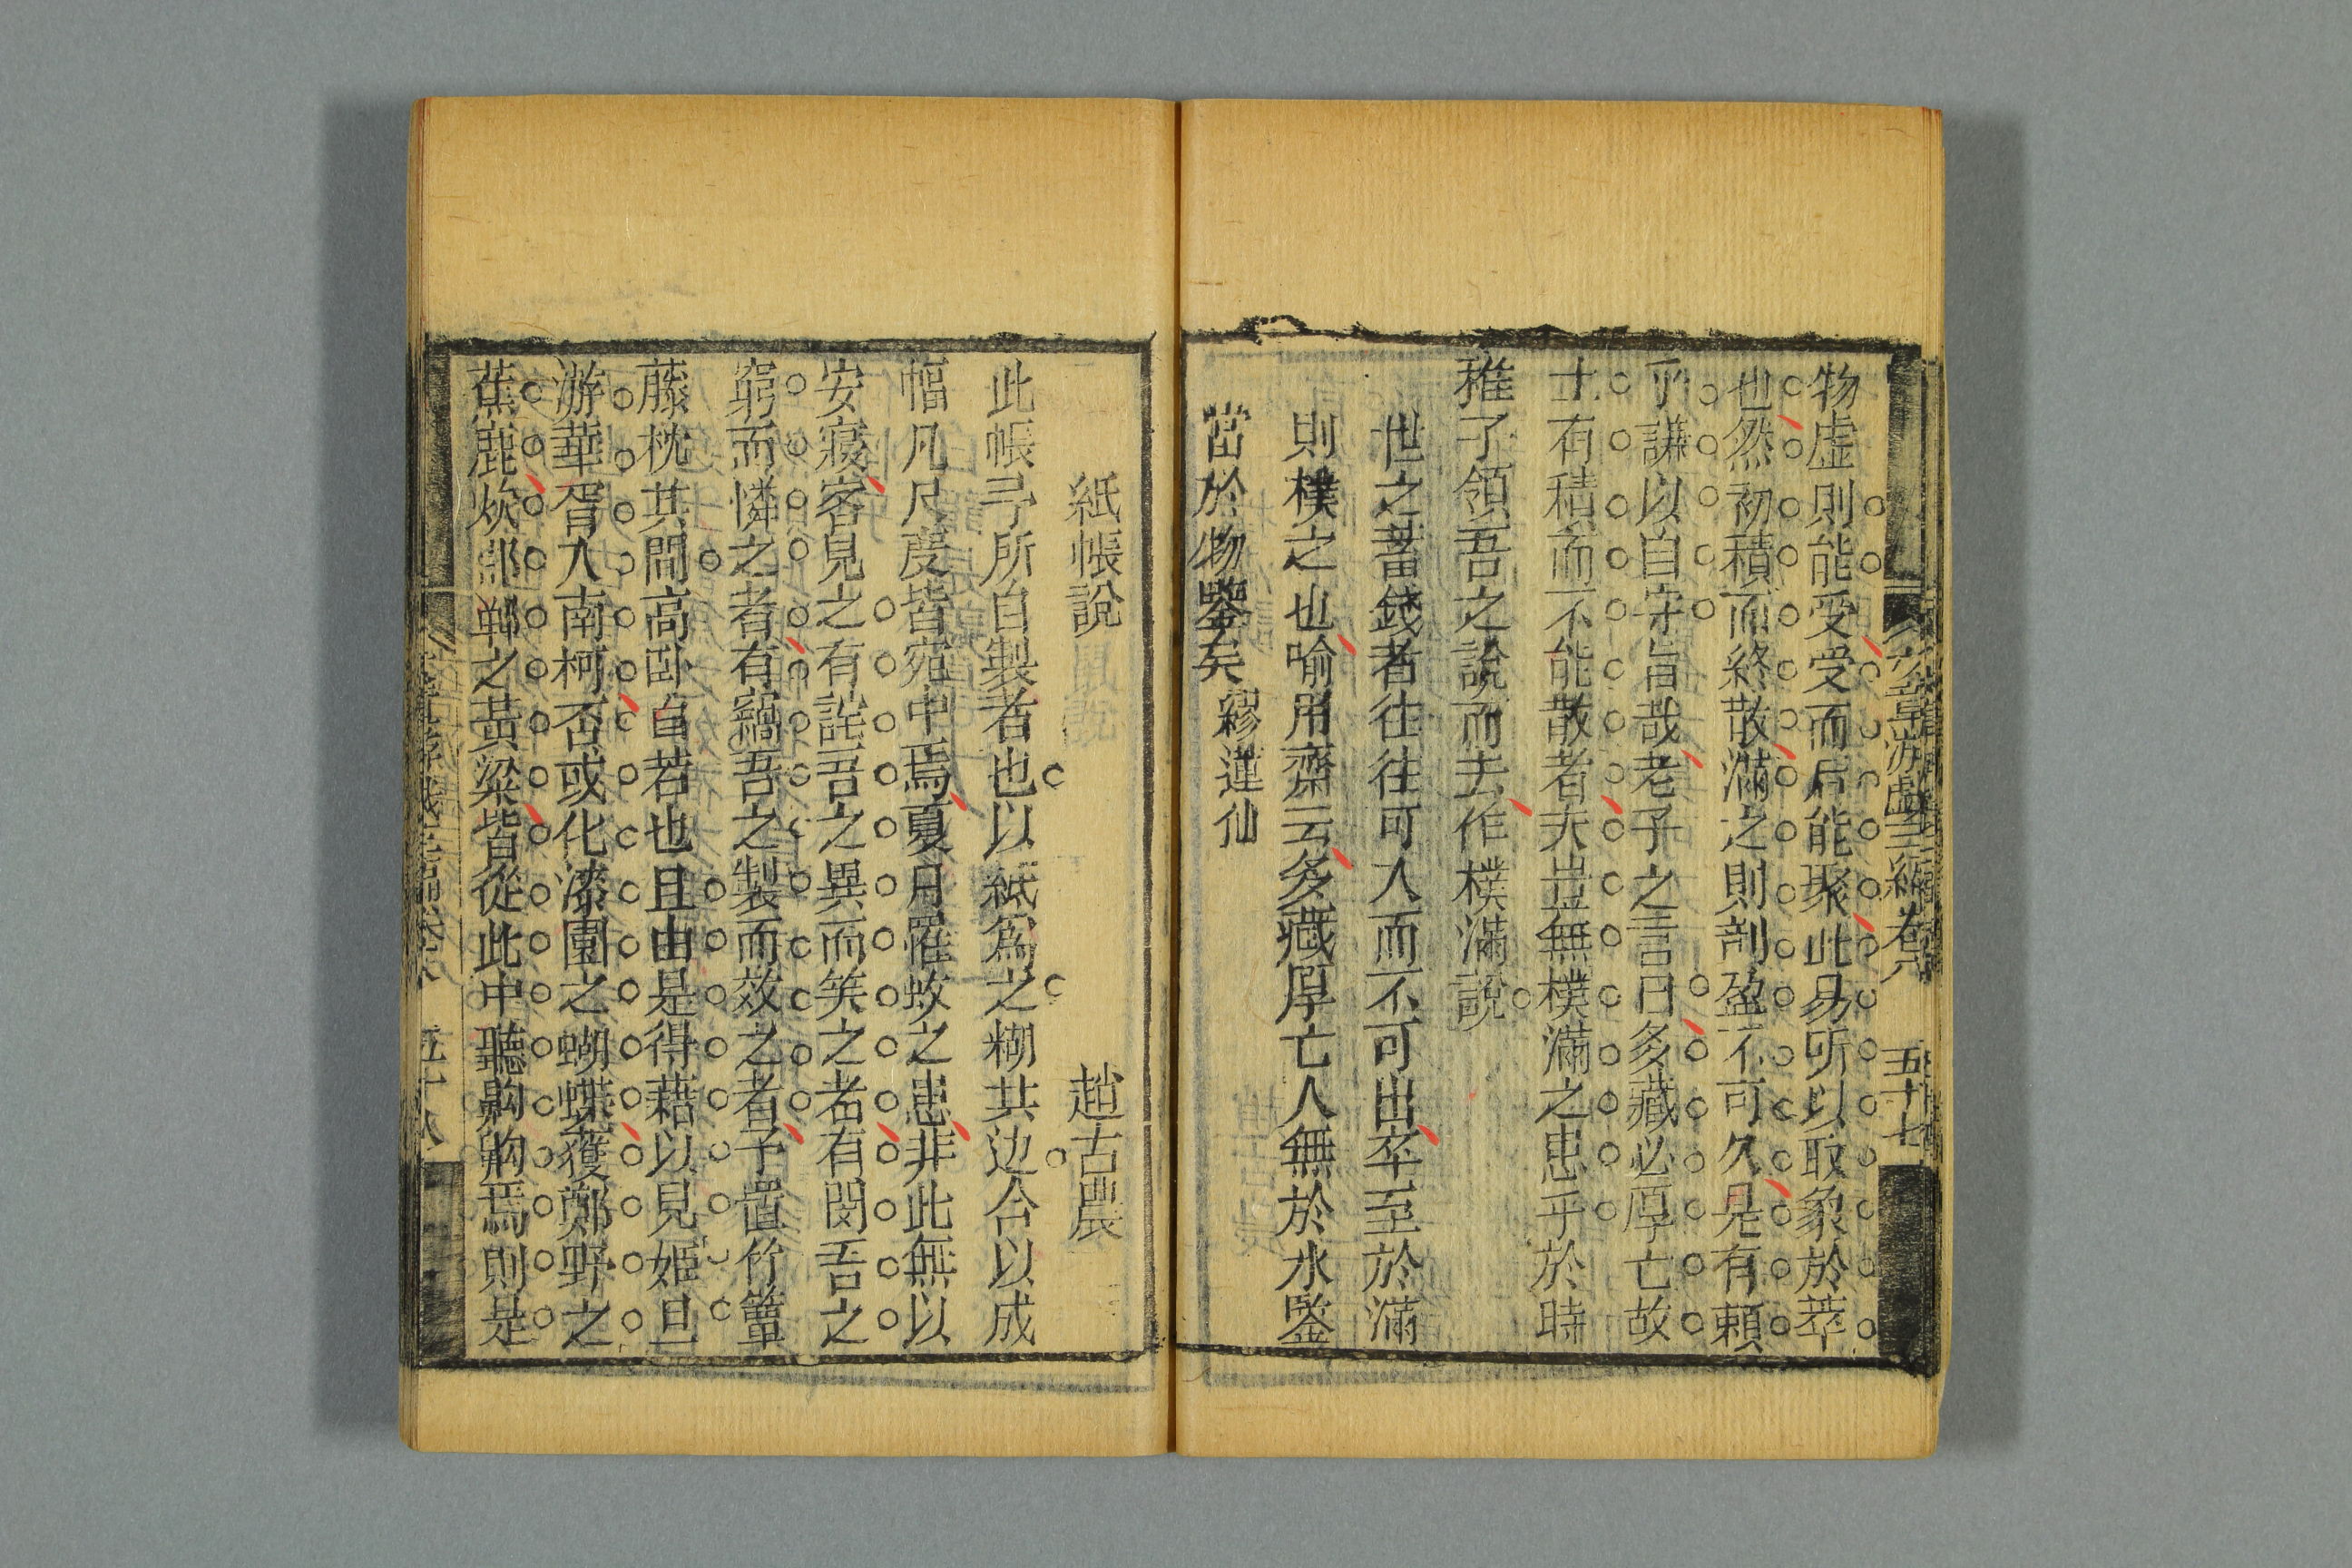 文章游戲三編卷六 五十七
物虛則能受受而后能聚此易所以取象於萃
也然初積而終散滿之則剖盈不可久是有賴
乎謙以自守旨哉老子之言曰多藏必厚亡故
士有積而不能散者夫豈無樸滿之患乎於時
稚子領吾之說而去作樸滿說
世之蓄錢者往往可入而不可出卒至於滿
則樸之也喻用齋云多藏厚亡人無於水鑒
當於物鑒矣 繆蓮仙
紙帳說 趙古農
此帳予所自製者也以紙為之糊共边合以成
幅凡尺度皆宛中焉夏月罹蚊之患非此無以
安寢客見之有詫吾之異而笑之者有閔吾之
窮而憐之者有竊吾之製而效之者予置竹簟
藤枕其間高卧自若也且由是得藉以見姬旦
游華胥入南柯否或化漆園之蝴蝶獲鄭野之
蕉鹿炊邯鄲之黃粱皆從此中聽齁齁焉則是
五十八